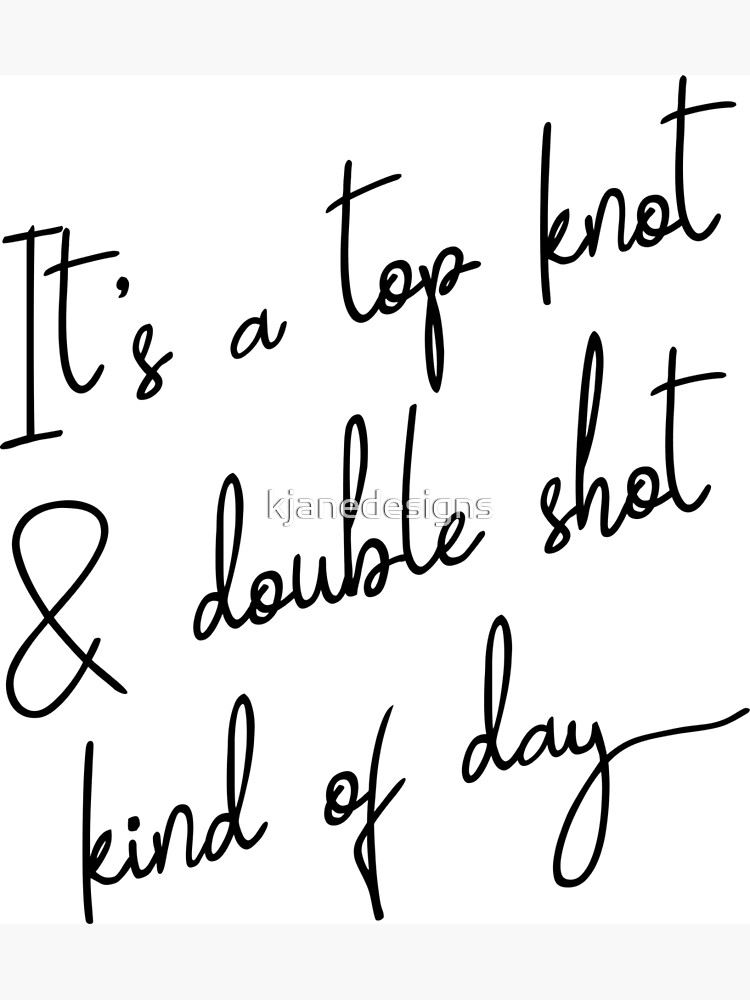 It's a top knot
& double shot
kjanedesigns
kind of day